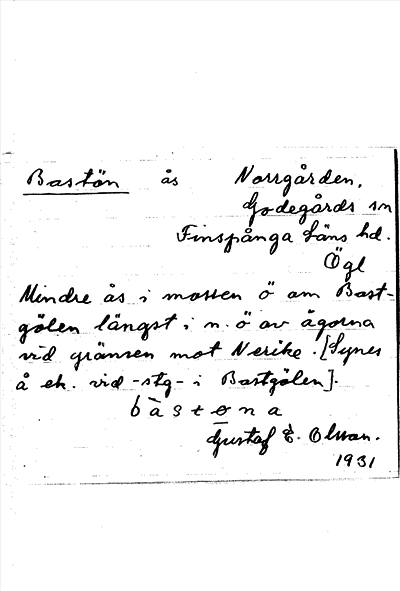 Bastön ås Norrgården,
Godegårds sn
Finspånga läns hd.
Ögl
Mindre ås i mossen ö om Bast-
gölen längst i n. ö av ägorna
vid gränsen mot Nerike. [Synes
å ek. vid -stg- i Bastgölen].
bàstøna
Gustaf E. Olsson.
1931